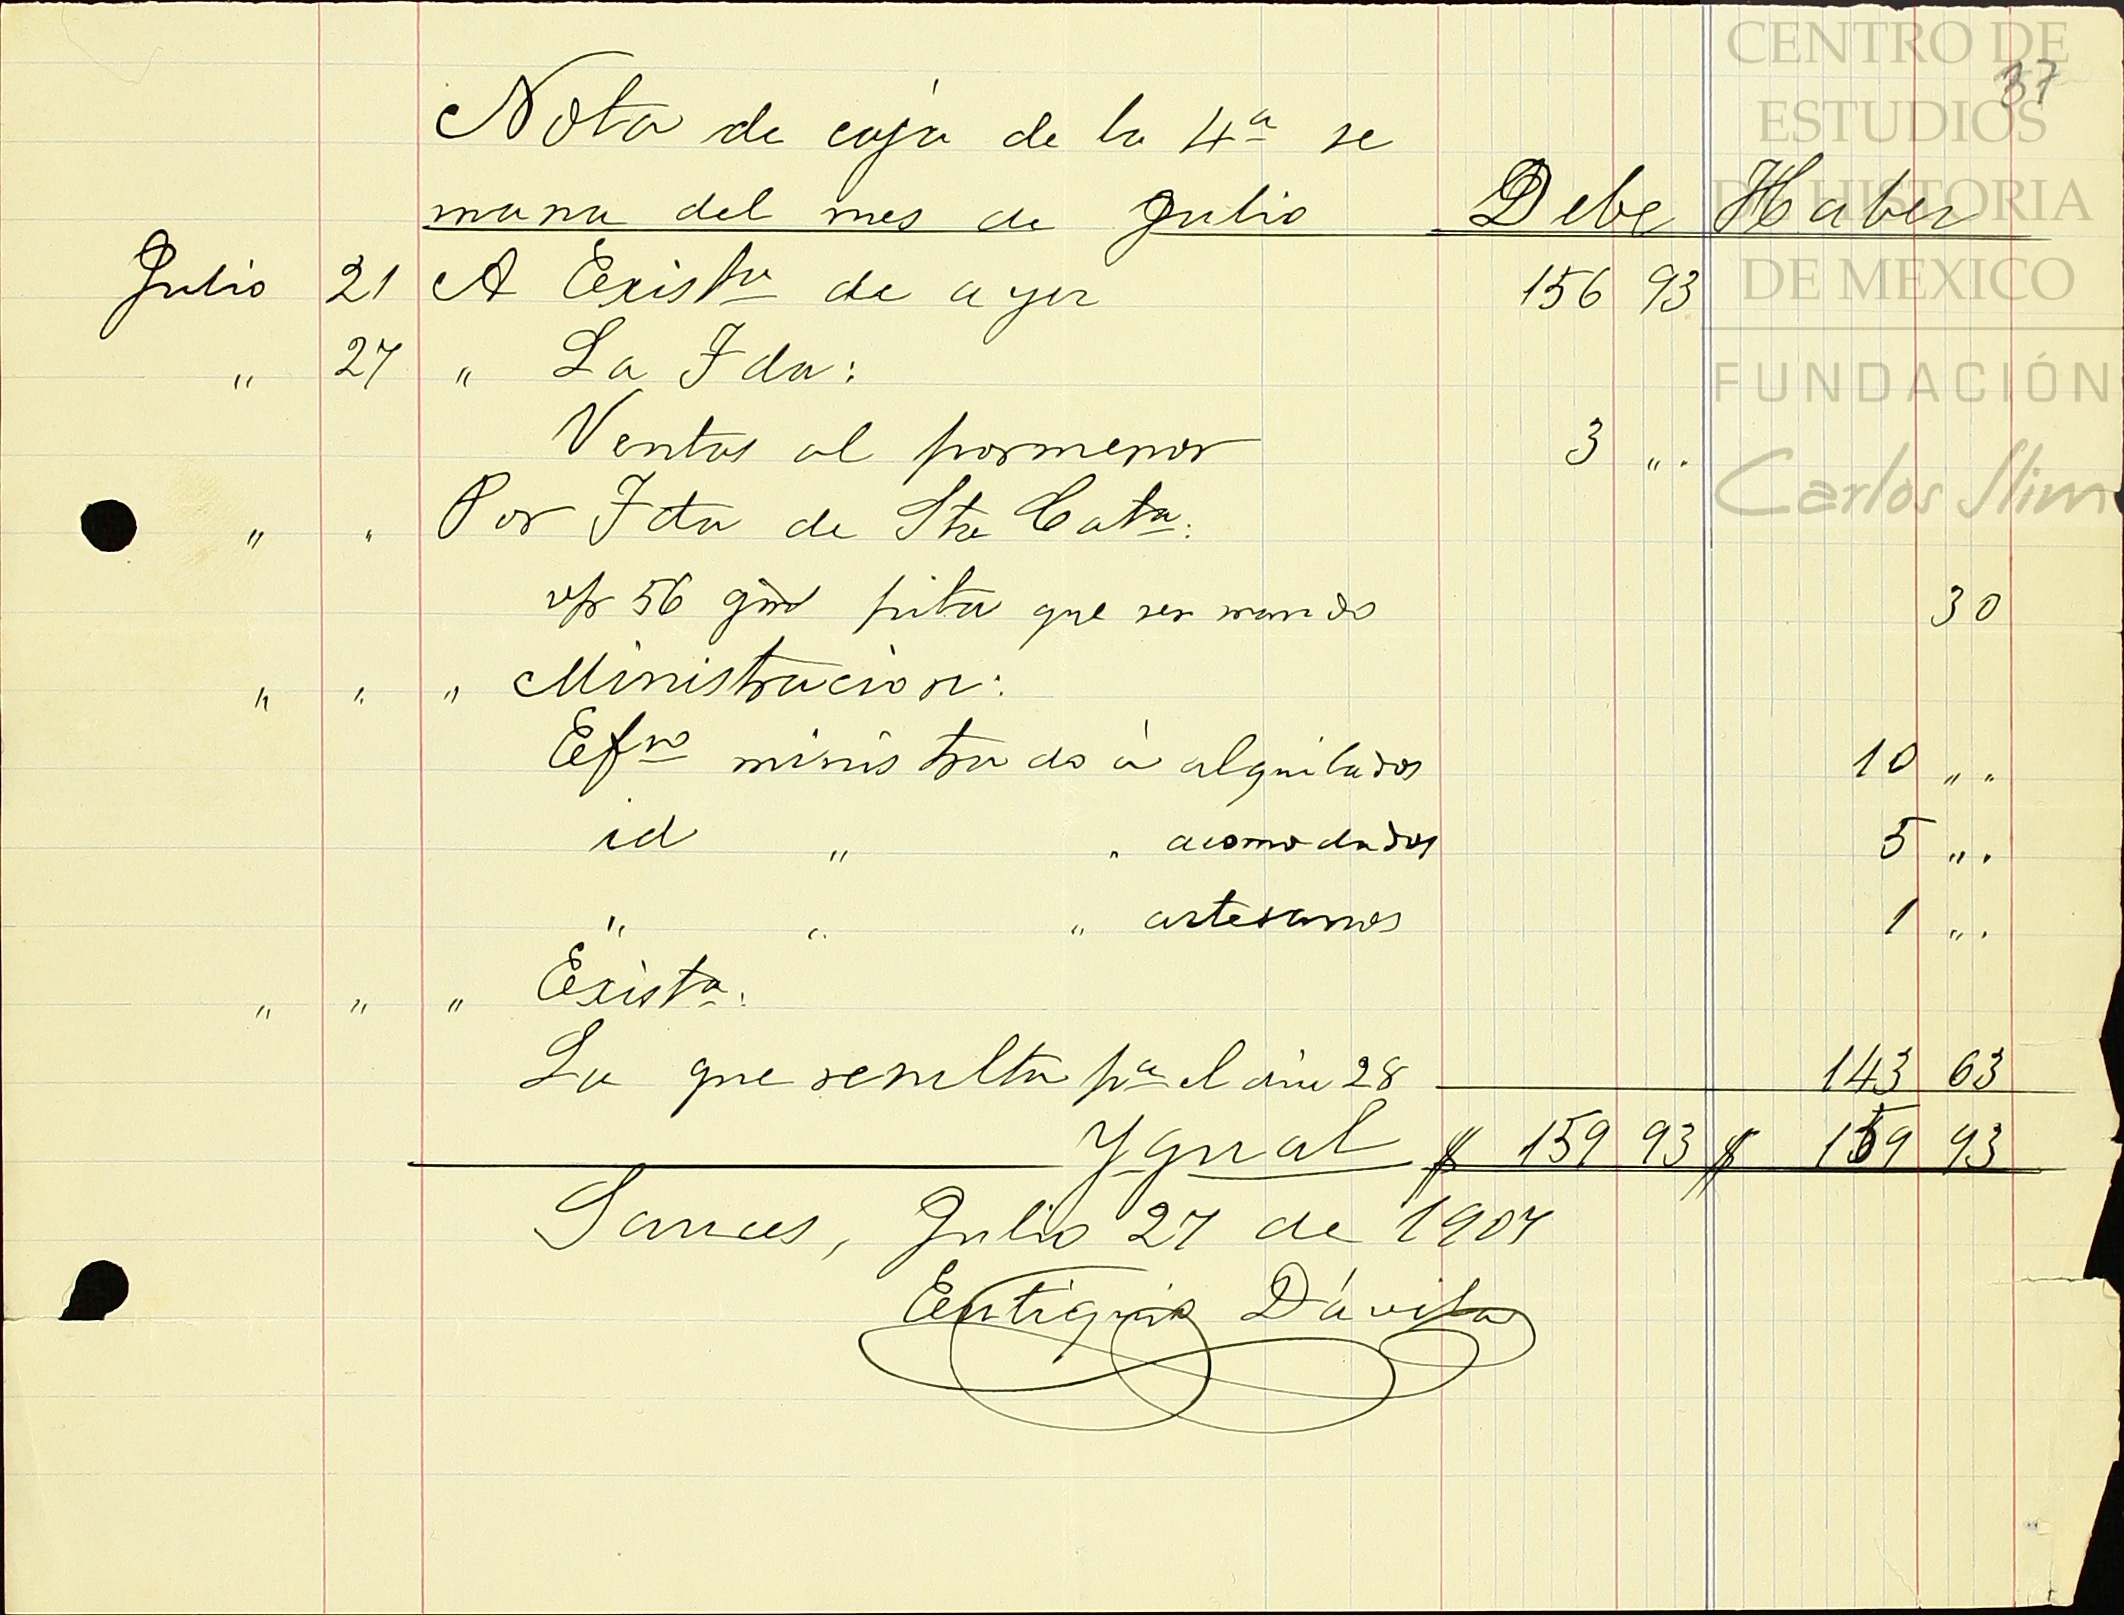 CENTRO DE
ESTUDIOS
DE HISTORIA
DE MEXICO
FUNDACIÓN
Carlos Slim
37
Nota de caja de la 4ª se
mana del mes de Julio Debe Haber
Julio 21 A Existª de ayer 156 93
" 27 " La Fda:
Ventas al pormenor 3 ".
" " Por Fda de Sta Catª:
56 pita que se mando 30
" " " Ministracion:
Efvo ministrado á alquilados 10 "
id " " acomodados 5 "
" " " artesanos 1 "
" " " Existª:
La que resulta pª el dia 28 143 63
Ygual $ 159 93 $ 159 93
Sauces, Julio 27 de 1907
Eutiquio Dávila